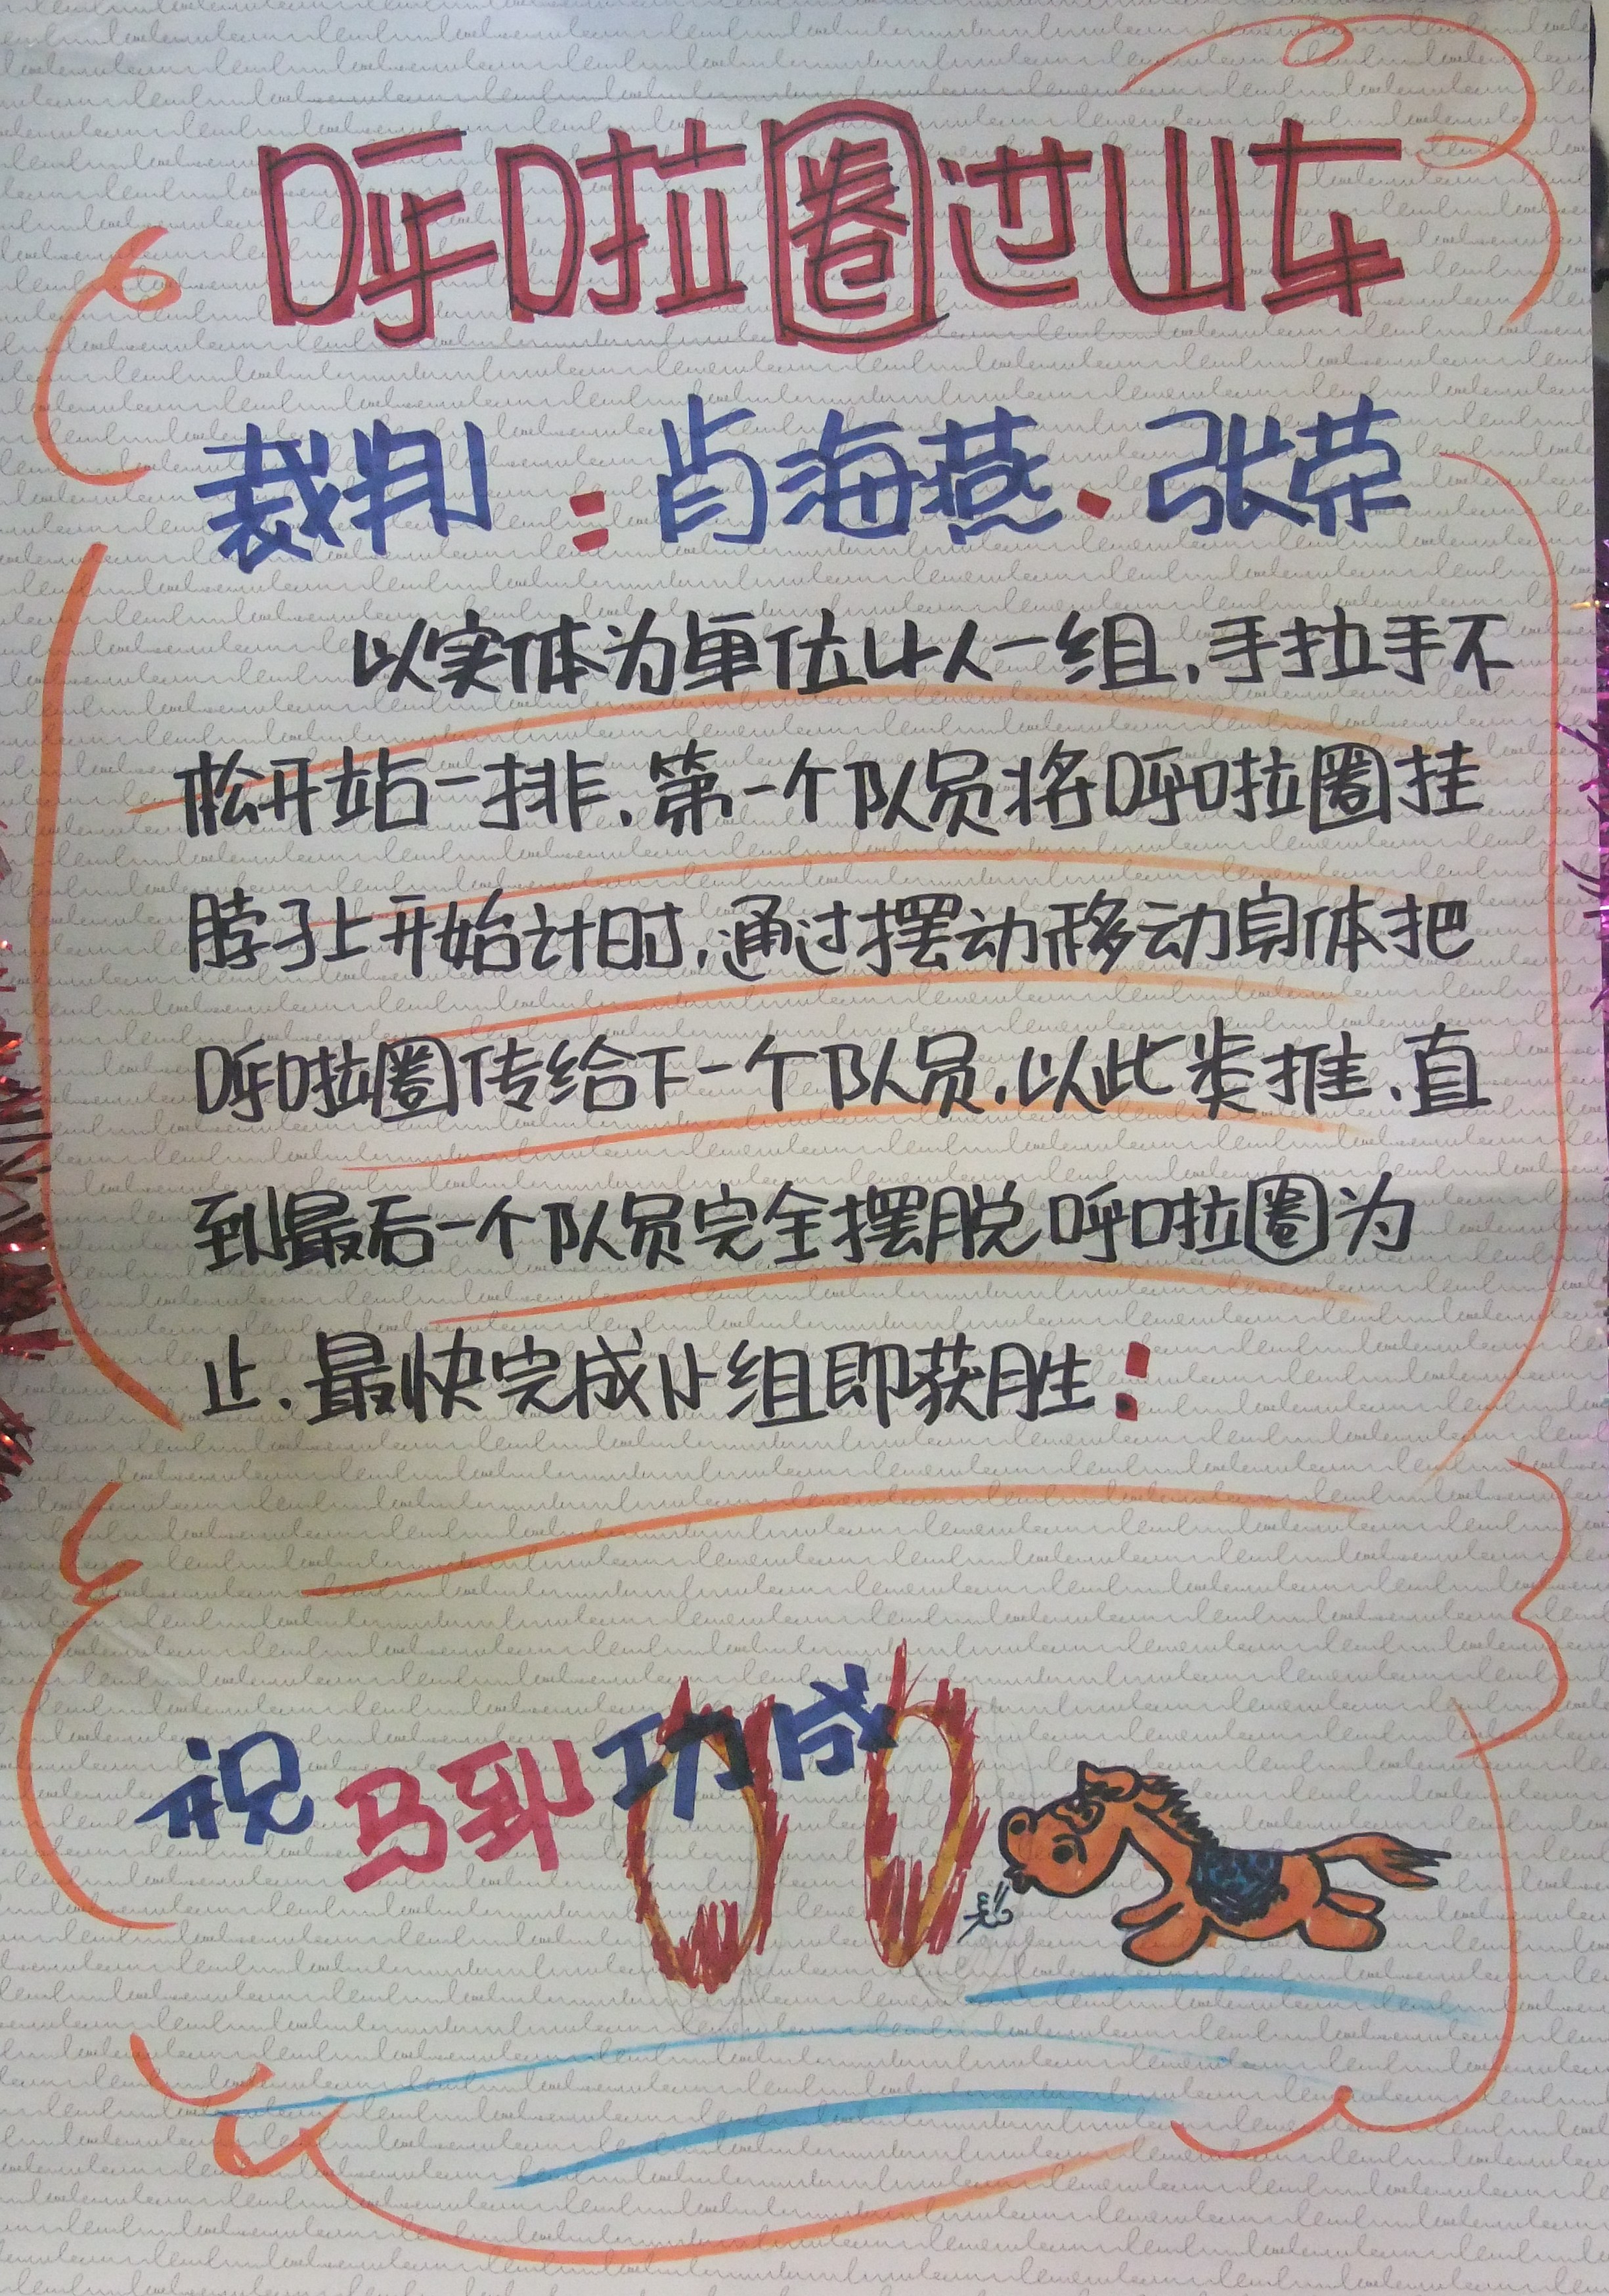 呼啦圈过山车
裁判：肖海燕、张荣
以实体为单位4人一组，手拉手不
松开站一排，第一个队员将呼啦圈挂
脖子上开始计时，通过摆动移动身体把
呼啦圈传给下一个队员，以此类推，直
到最后一个队员完全摆脱呼啦圈为
止，最快完成小组即获胜：
祝马到功成